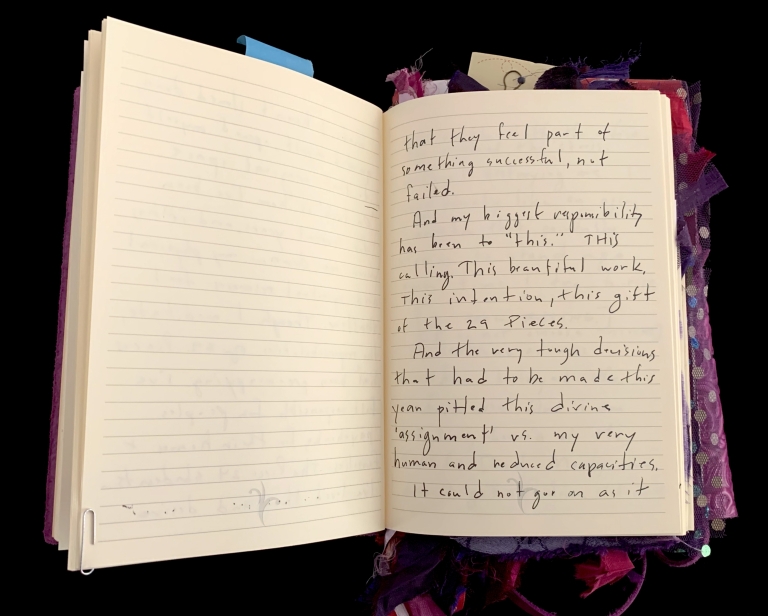 that they feel part of
something successful, not
failed.
And my biggest responsibility
has been to "this." THIS
calling. This beautiful work,
This intention, this gift
of the 29 Pieces.
And the very tough decisions
that had to be made this
year pitted this divine
'assignment' vs. my very
human and reduced capacities.
It could not on as it